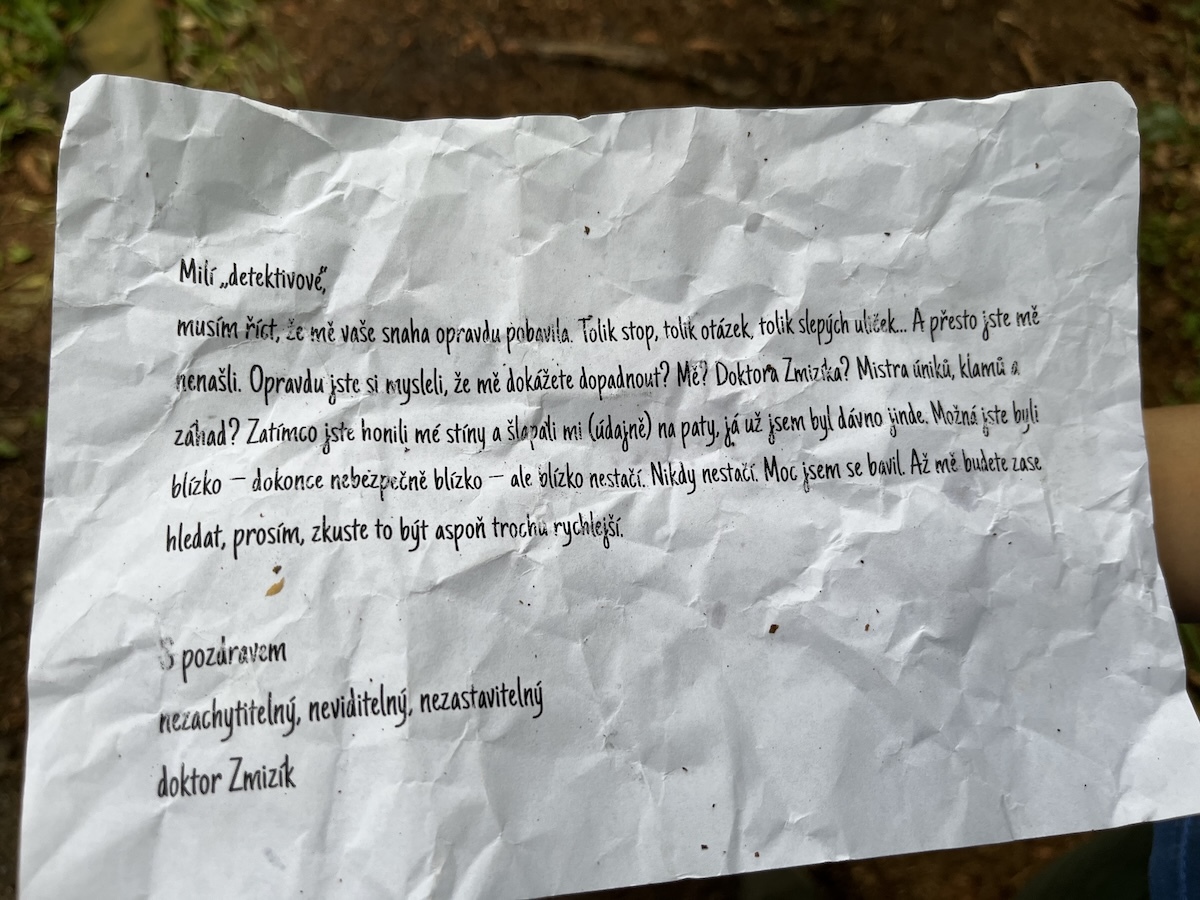 Milí „detektivové“,
musím říct, že mě vaše snaha opravdu pobavila. Tolik stop, tolik otázek, tolik slepých uliček... A přesto jste mě
nenašli. Opravdu jste si mysleli, že mě dokážete dopadnout? Mě? Doktora Zmizíka? Mistra úniků, klamů a
záhad? Zatímco jste honili mé stíny a šlapali mi (údajně) na paty, já už jsem byl dávno jinde. Možná jste byli
blízko – dokonce nebezpečně blízko – ale blízko nestačí. Nikdy nestačí. Moc jsem se bavil. Až mě budete zase
hledat, prosím, zkuste to být aspoň trochu rychlejší.
S pozdravem
nezachytitelný, neviditelný, nezastavitelný
doktor Zmizík